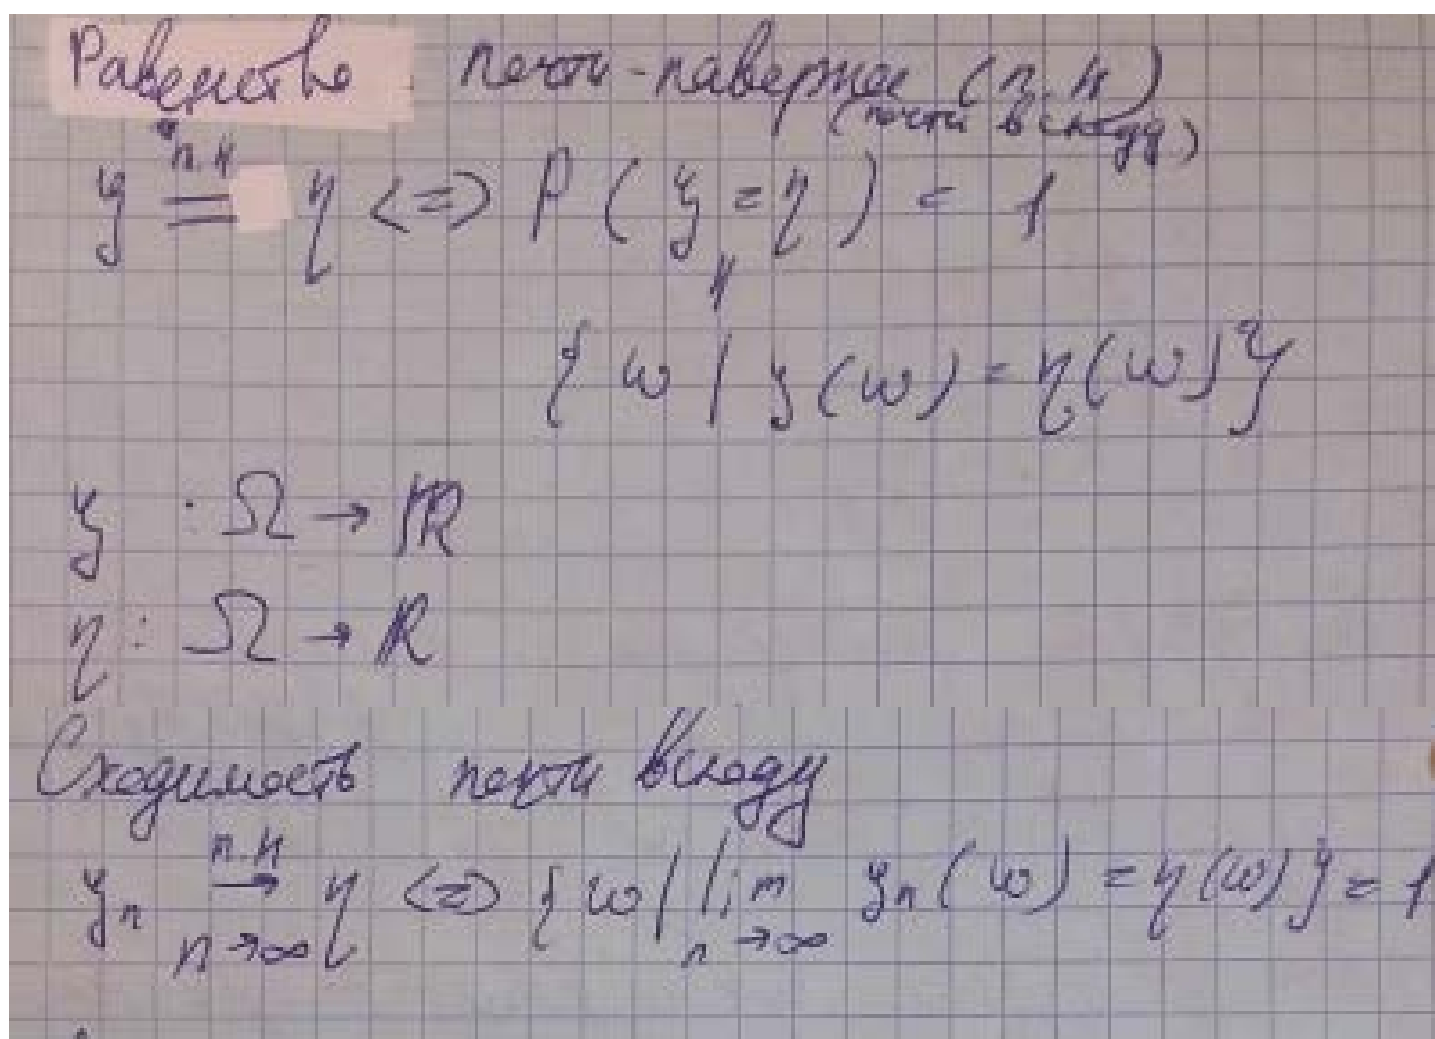 Равенство почти-наверное (п.н)
(почти всюду)
ξ п.н = η <=> P(ξ = η) = 1
{ω | ξ(ω) = η(ω)}
ξ : Ω → ℝ
η : Ω → ℝ
Сходимость почти всюду
ξn п.н → n→∞ η <=> {ω | lim n→∞ ξn(ω) = η(ω)} = 1